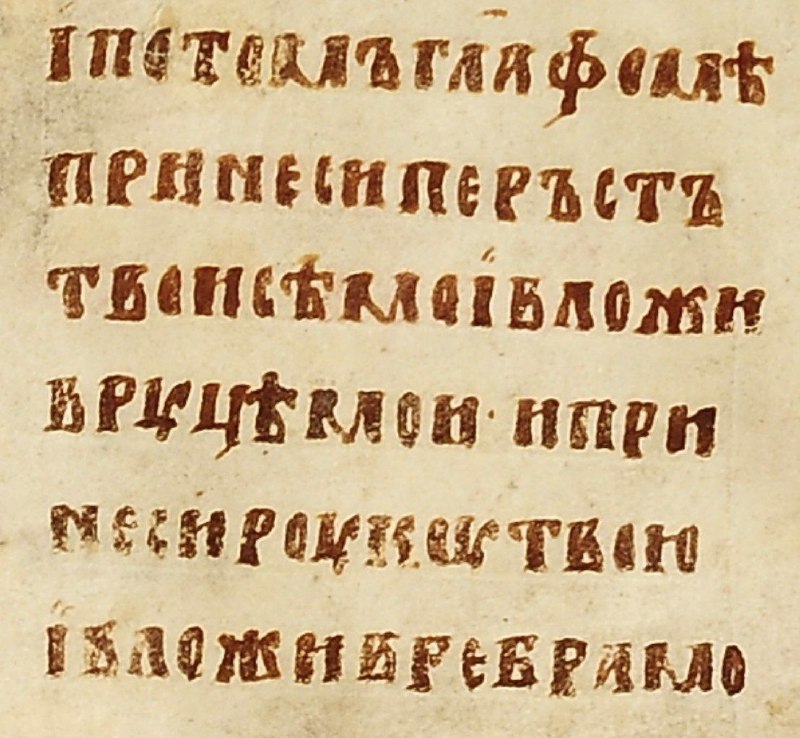 ІПОТОМЪГЛ҃АФОМѢ
ПРИНЕСИПЕРЪСТЪ
ТВОИСѢМОІВЛОЖИ
ВРУЦѢМОИ· ИПРИ
НЕСИРОУКОУТВОЮ
ІВЛОЖИВРЕБРАМО